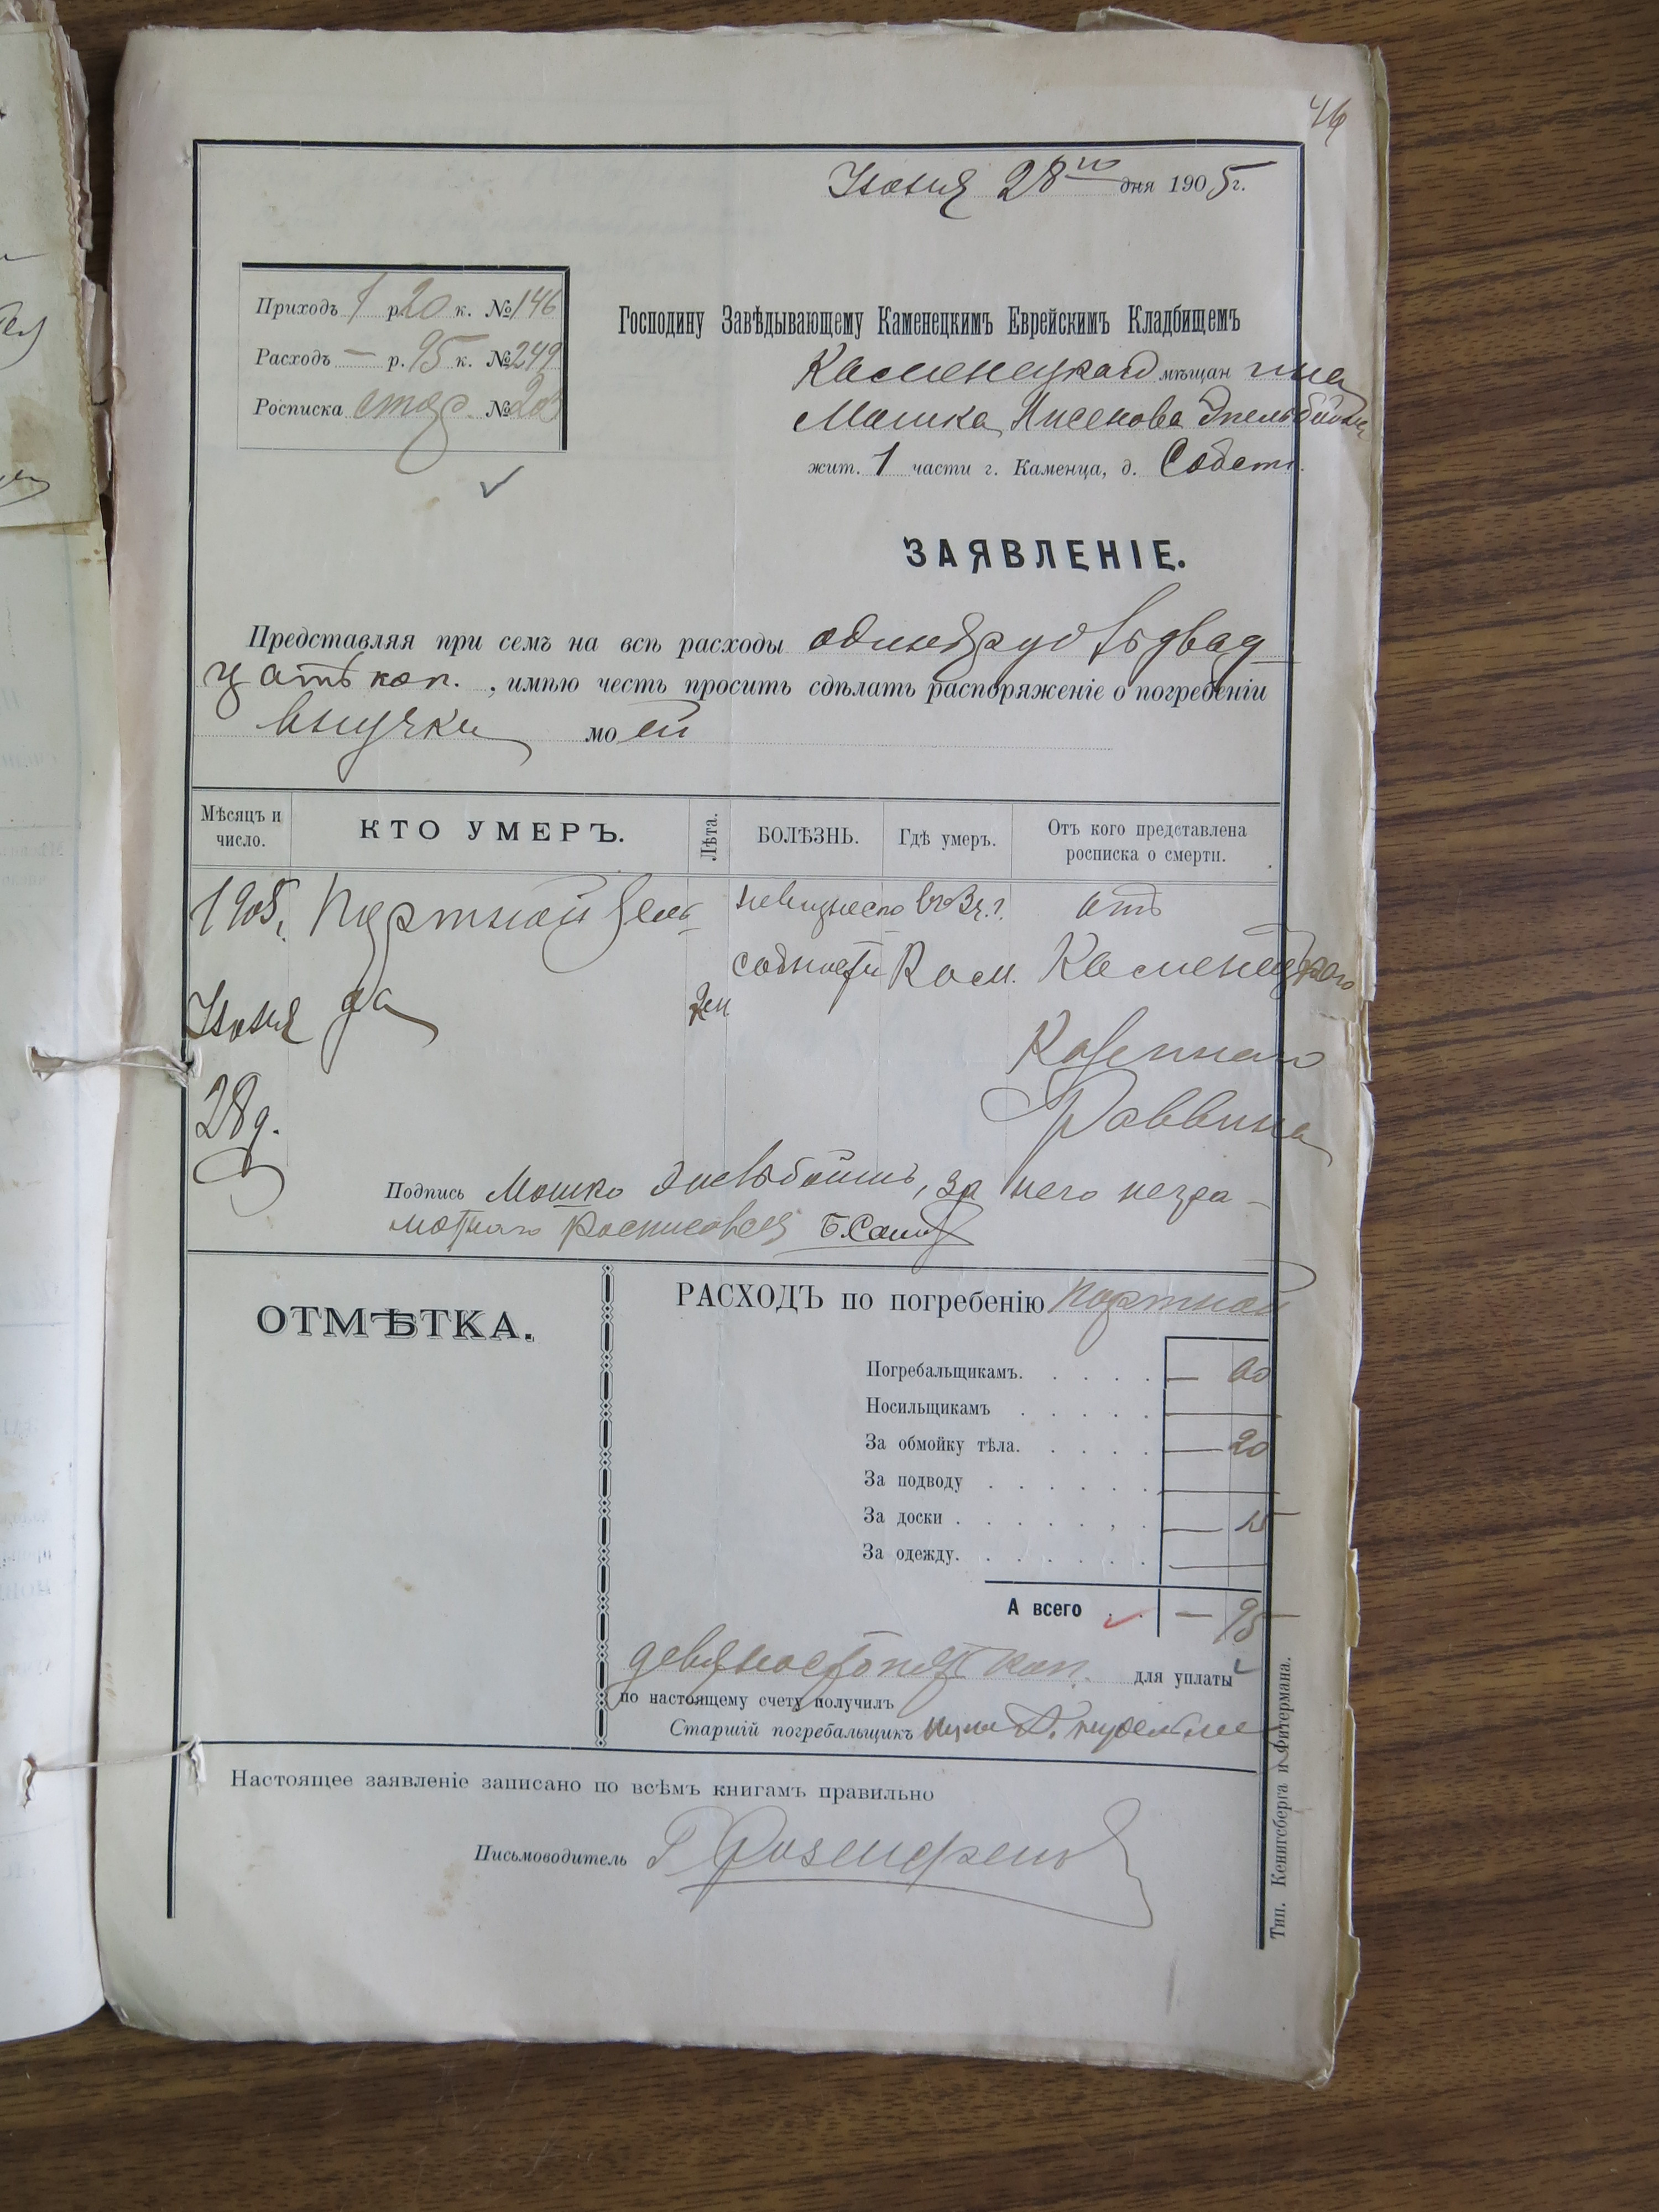 46
Іюня 28го дня 1905 г.
Приходъ 1 р. 20 к. № 146
Расходъ — р. 95 к. № 249
Росписка № 
Господину Завѣдывающему Каменецкимъ Еврейскимъ Кладбищемъ
Каменецкаго мѣщанина
Мошка Нисенова
жит. 1 части г. Каменца, д. Собств.
ЗАЯВЛЕНІЕ.
Представляя при семъ на всѣ расходы одинъ руб двад
цать коп. , имѣю честь просить сдѣлать распоряженіе о погребеніи
внучки моей
Мѣсяцъ и число. КТО УМЕРЪ. Лѣта. БОЛѢЗНЬ. Гдѣ умеръ. Отъ кого представлена росписка о смерти.
1905 г. Портной Зель въ г. отъ
Кам. Каменецкаго
Іюня да
Казеннаго
28 д. Раввина
Подпись Мошко за него негра-
мотнаго росписовся
ОТМѢТКА.
РАСХОДЪ по погребенію Портной
Погребальщикамъ. — 60
Носильщикамъ —
За обмойку тѣла. — 20
За подводу —
За доски — 15
За одежду. —
А всего — 95
девяносто пять коп. для уплаты
по настоящему счету получилъ
Старшій погребальщикъ
Настоящее заявленіе записано по всѣмъ книгамъ правильно
Письмоводитель
Тип. Кенигсберга и Фитермана.